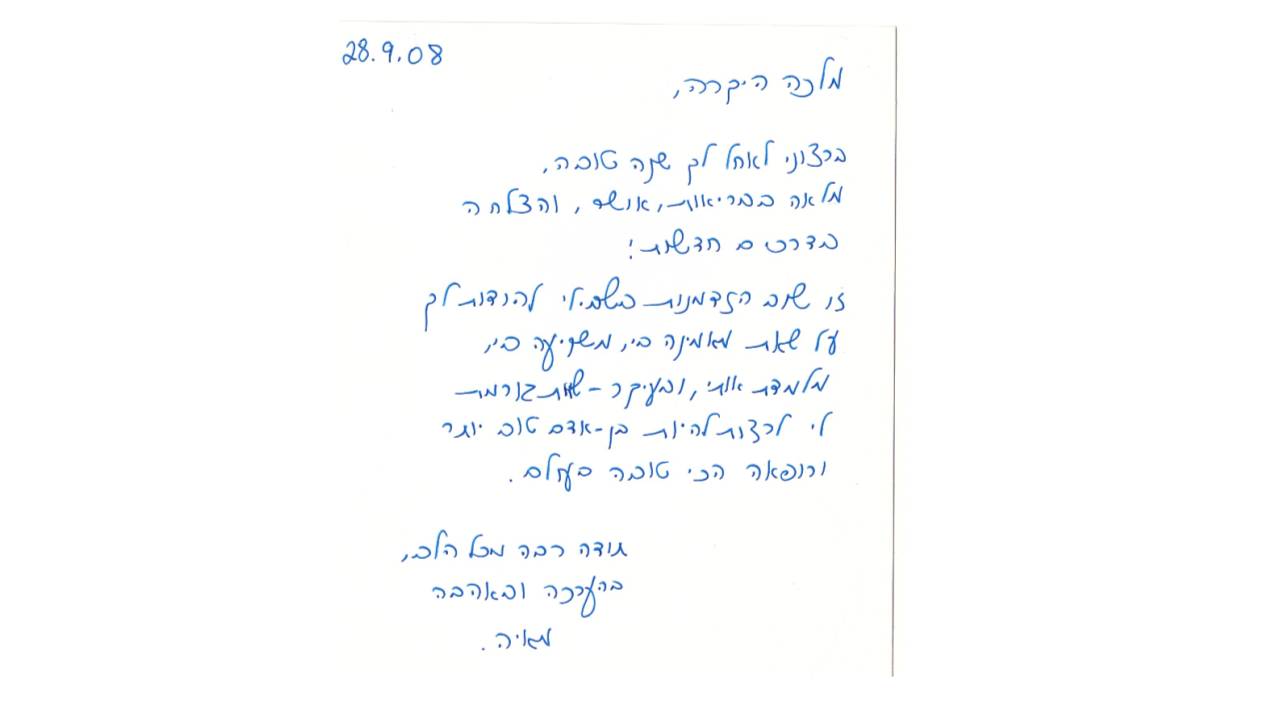 28.9.08
מלכה היקרה,
ברצוני לאחל לך שנה טובה,
מלאה בבריאות, אושר, והצלחה
בדרכים חדשות!
זו שוב הזדמנות בשבילי להודות לך
על שאת מאמינה בי, משקיעה בי,
מלמדת אותי, ובעיקר - שאת גורמת
לי לרצות להיות בן-אדם טוב יותר
ורופאה הכי טובה בעולם.
תודה רבה מכל הלב,
בהערכה ובאהבה
מאיה.